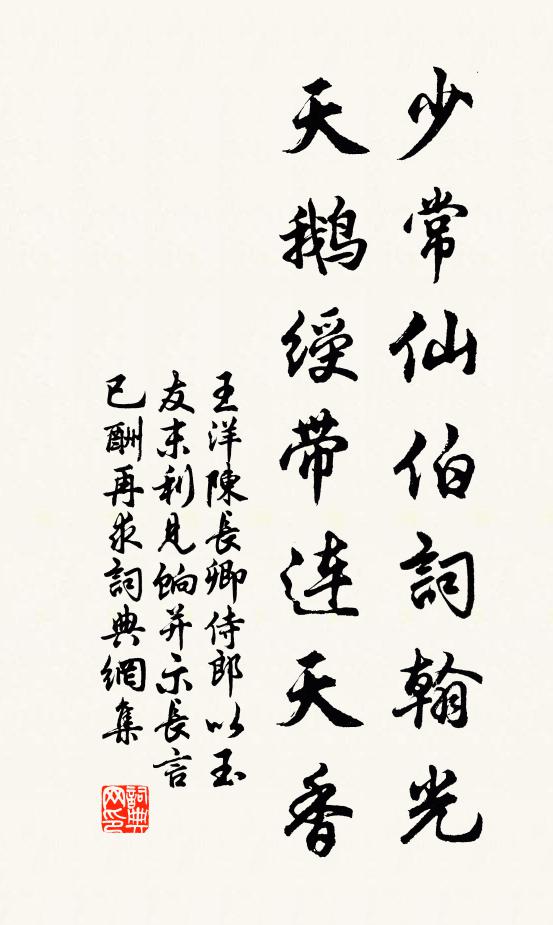 少常仙伯詞翰光
天鵝綬带连天香
王洋陳長卿侍郎以玉
友末利見餉并示長言
已酬再求詞典網集
詞典网印